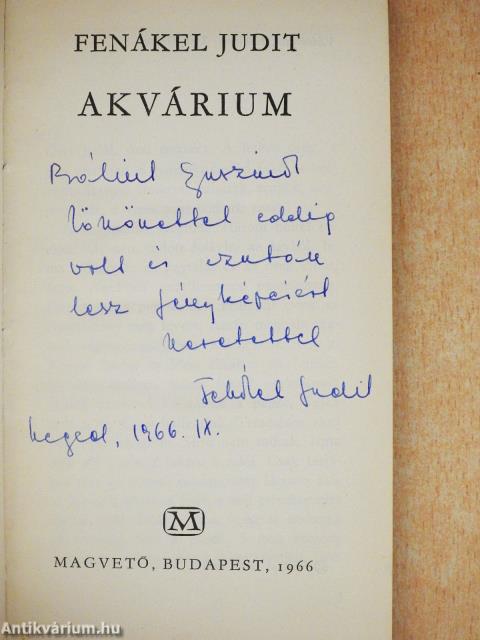 FENÁKEL JUDIT
AKVÁRIUM
Bálint
eddig
volt és ezután
lesz fényképeiért
szeretettel
Fenákel Judit
Szeged, 1966. IX.
M
MAGVETŐ, BUDAPEST, 1966
Antikvárium.hu